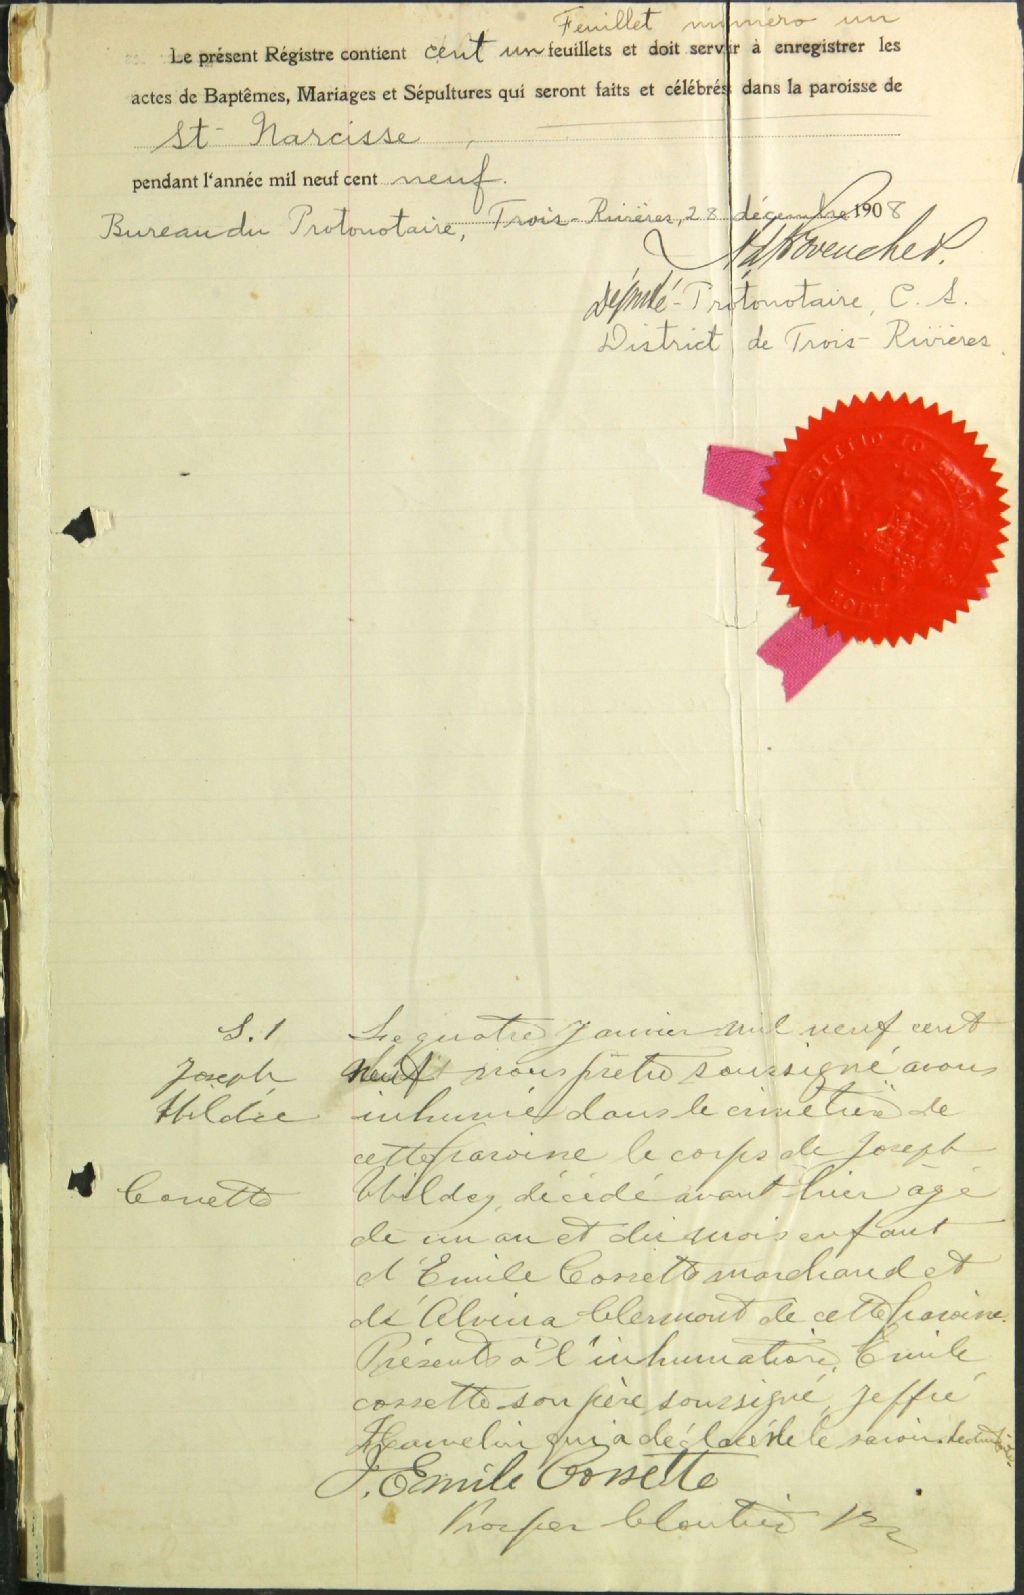 Feuillet numéro un
Le présent Régistre contient cent un feuillets et doit servir à enregistrer les
actes de Baptêmes, Mariages et Sépultures qui seront faits et célébrés dans la paroisse de
St Narcisse
pendant l'année mil neuf cent neuf.
Bureau du Protonotaire, Trois-Rivières, 28 décembre 1908
Député-Protonotaire, C. S.
District de Trois-Rivières
S. 1
Joseph
Hildée
Cossette
Le quatre Janvier mil neuf cent
neuf nous prêtre soussigné avons
inhumé dans le cimetière de
cette paroisse le corps de Joseph
décédé avant-hier agé
de un an et dix mois enfant
d'Emile Cossette marchand et
de Alvina Clermont de cette paroisse.
Présents à l'inhumation, Emile
cossette son père soussigné, Jeffré
Hamelin qui a déclaré ne le savoir. Lecture faite.
J. Emile Cossette
Prosper Cloutier Ptre